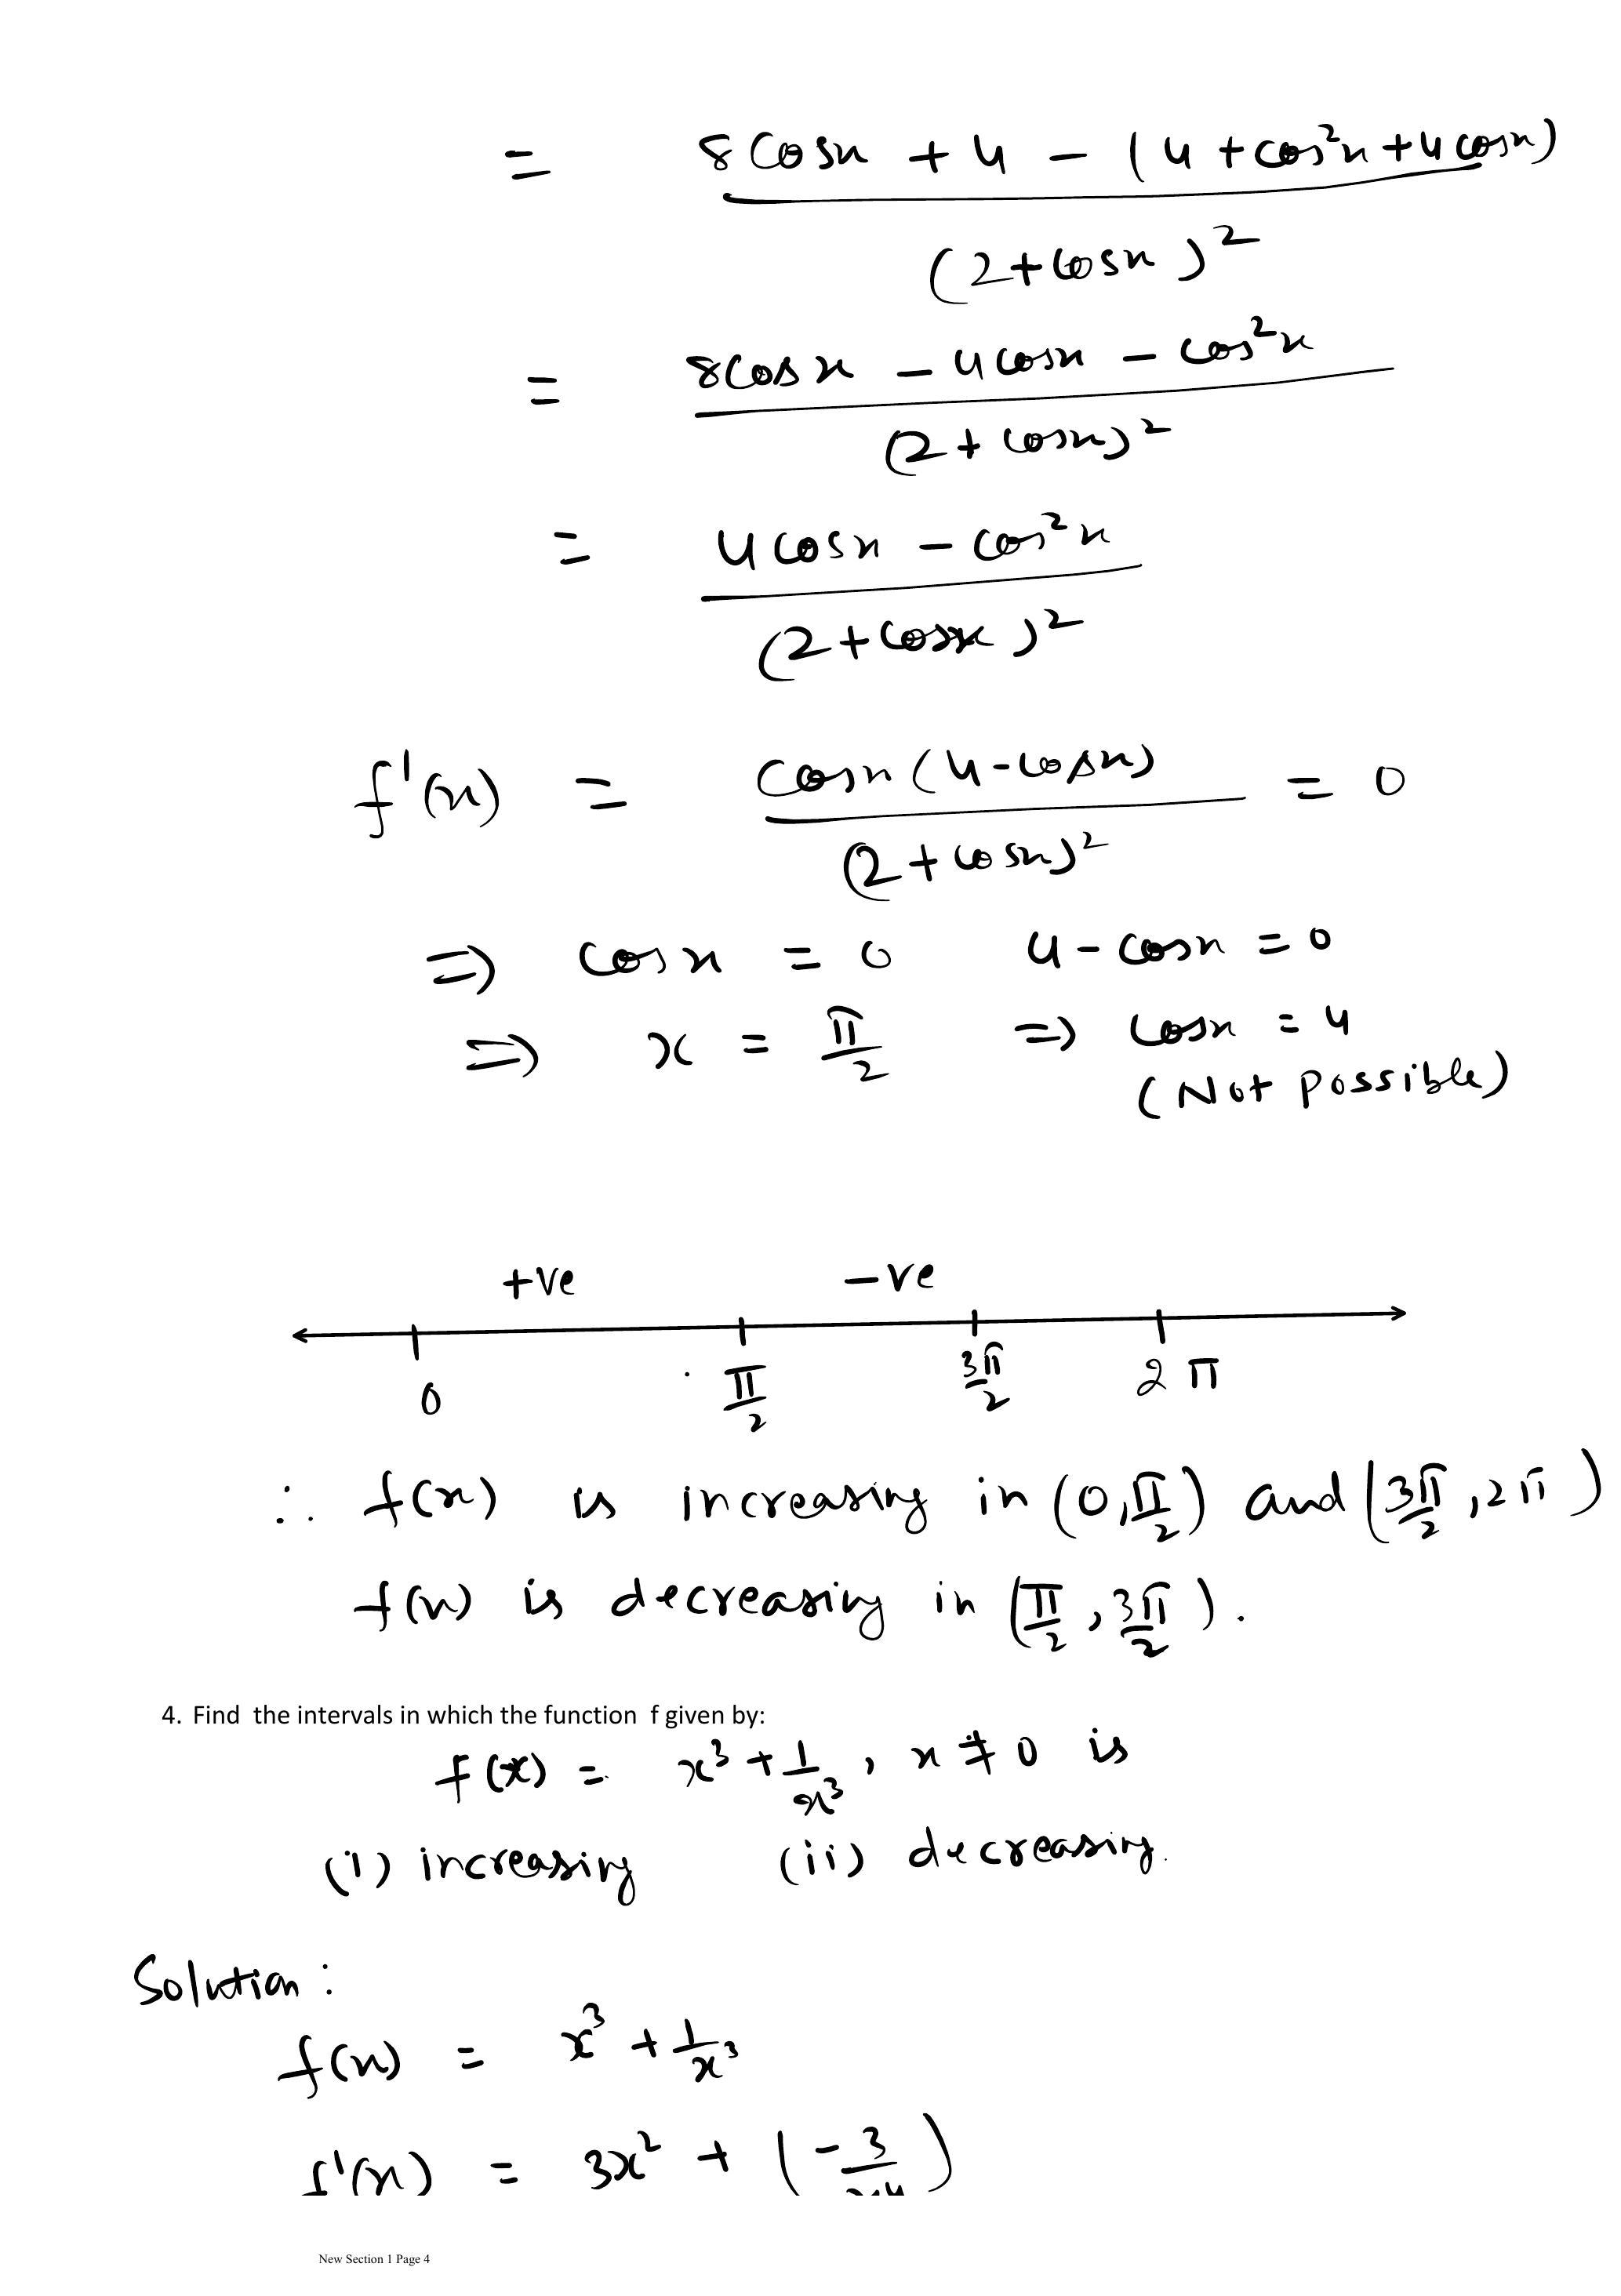 = 8cosx + 4 - (4 + cos²x + 4cosx)
(2+cosx)²
= 8cosx - 4cosx - cos²x
(2+cosx)²
= 4cosx - cos²x
(2+cosx)²
f'(x) = cosx(4-cosx) = 0
(2+cosx)²
⇒ cosx = 0 4-cosx = 0
⇒ x = π/2 ⇒ cosx = 4
(Not possible)
+ve -ve
0 π/2 3π/2 2π
∴ f(x) is increasing in (0,π/2) and (3π/2,2π)
f(x) is decreasing in (π/2,3π/2).
4. Find the intervals in which the function f given by:
f(x) = x³+1/x³, x≠0 is
(i) increasing (ii) decreasing.
Solution:
f(x) = x³+1/x³
f'(x) = 3x² + (-3/x⁴)
New Section 1 Page 4